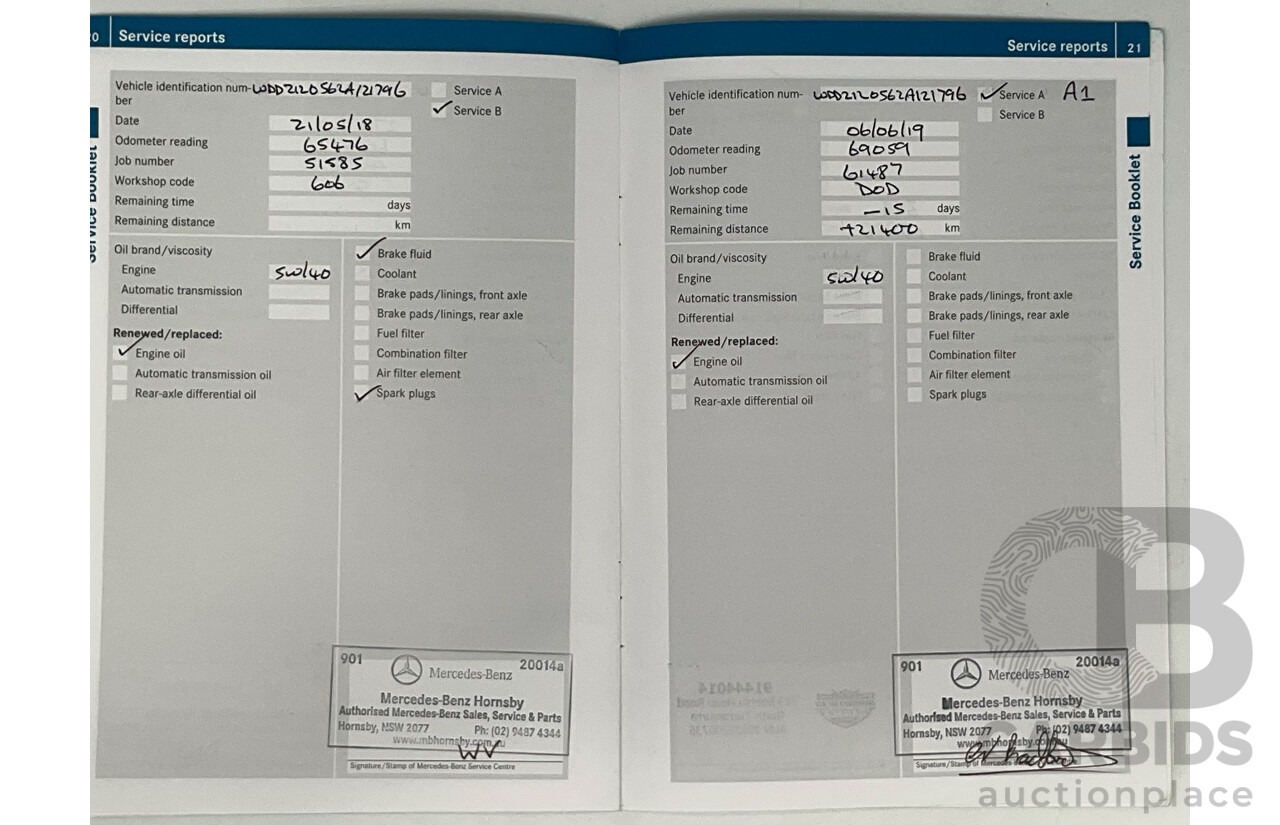 20 Service reports
Vehicle identification num- WDD2120562A121796
ber
Service A
Service B
Date 21/05/18
Odometer reading 65476
Job number 51585
Workshop code 606
Remaining time days
Remaining distance km
Oil brand/viscosity
Engine 5w/40
Automatic transmission
Differential
Renewed/replaced:
Engine oil
Automatic transmission oil
Rear-axle differential oil
Brake fluid
Coolant
Brake pads/linings, front axle
Brake pads/linings, rear axle
Fuel filter
Combination filter
Air filter element
Spark plugs
901 Mercedes-Benz 20014a
Mercedes-Benz Hornsby
Authorised Mercedes-Benz Sales, Service & Parts
Hornsby, NSW 2077 Ph: (02) 9487 4344
www.mbhornsby.com.au
Signature/Stamp of Mercedes-Benz Service Centre
Service Booklet
Service reports 21
Vehicle identification num- WDD2120562A121796
ber
Service A A1
Service B
Date 06/06/19
Odometer reading 69059
Job number 61487
Workshop code DOD
Remaining time -15 days
Remaining distance +21400 km
Oil brand/viscosity
Engine 5w/40
Automatic transmission
Differential
Renewed/replaced:
Engine oil
Automatic transmission oil
Rear-axle differential oil
Brake fluid
Coolant
Brake pads/linings, front axle
Brake pads/linings, rear axle
Fuel filter
Combination filter
Air filter element
Spark plugs
901 Mercedes-Benz 20014a
Mercedes-Benz Hornsby
Authorised Mercedes-Benz Sales, Service & Parts
Hornsby, NSW 2077 Ph: (02) 9487 4344
www.mbhornsby.com.au
Signature/Stamp of Mercedes
Service Booklet
CARBIDS
auctionplace